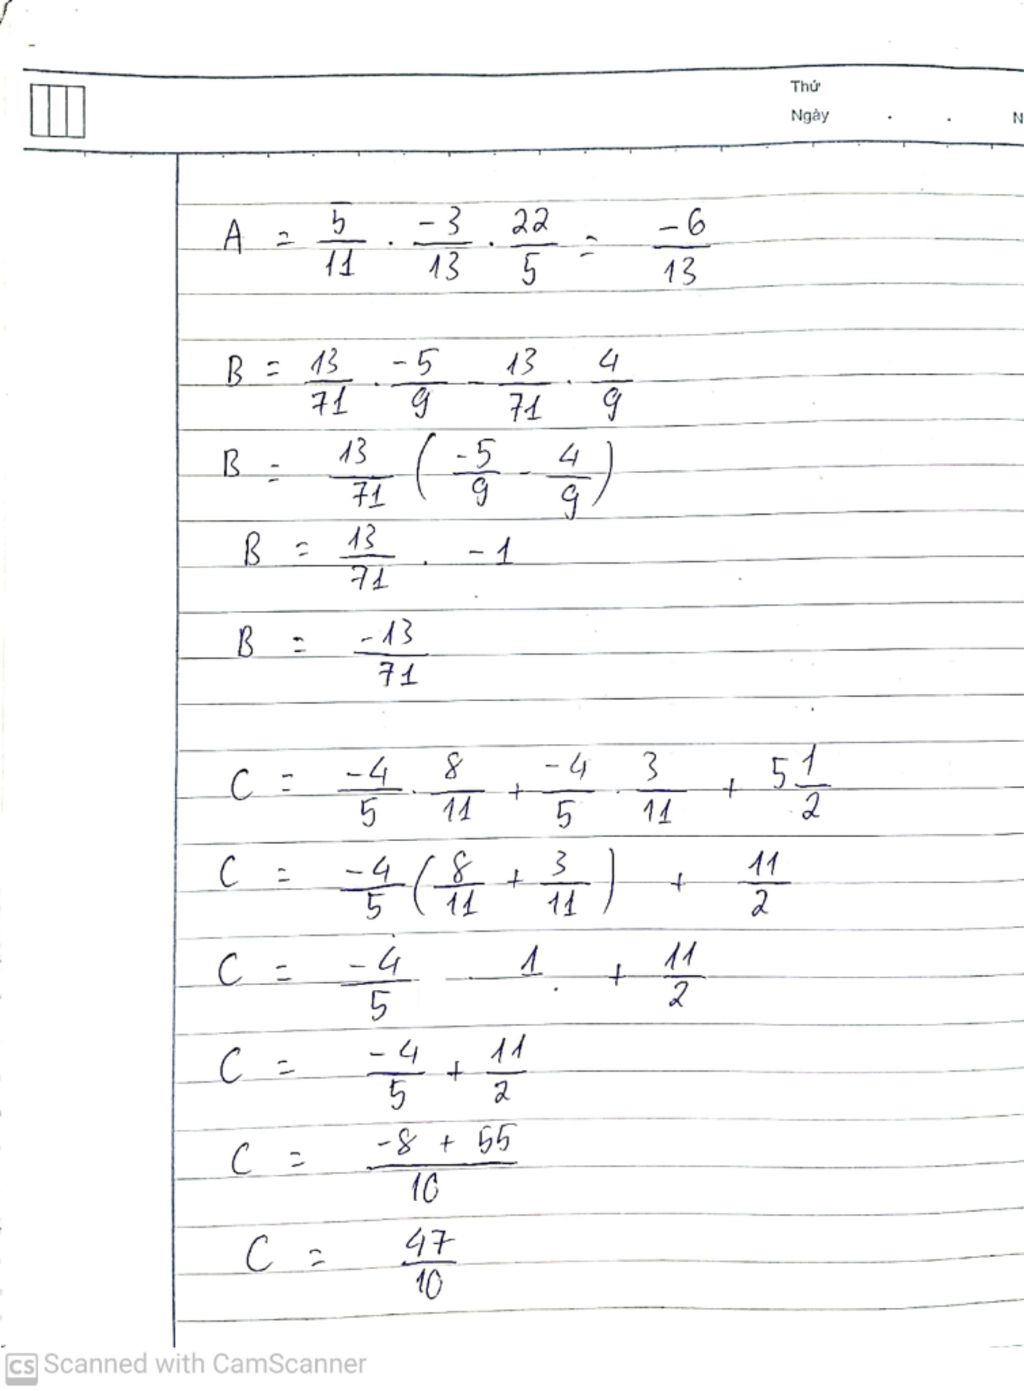 Thứ
Ngày . . N
A = 5/11 . -3/13 . 22/5 = -6/13
B = 13/71 . -5/9 - 13/71 . 4/9
B = 13/71 ( -5/9 - 4/9 )
B = 13/71 . -1
B = -13/71
C = -4/5 . 8/11 + -4/5 . 3/11 + 5 1/2
C = -4/5 ( 8/11 + 3/11 ) + 11/2
C = -4/5 . 1 + 11/2
C = -4/5 + 11/2
C = -8 + 55/10
C = 47/10
CS Scanned with CamScanner